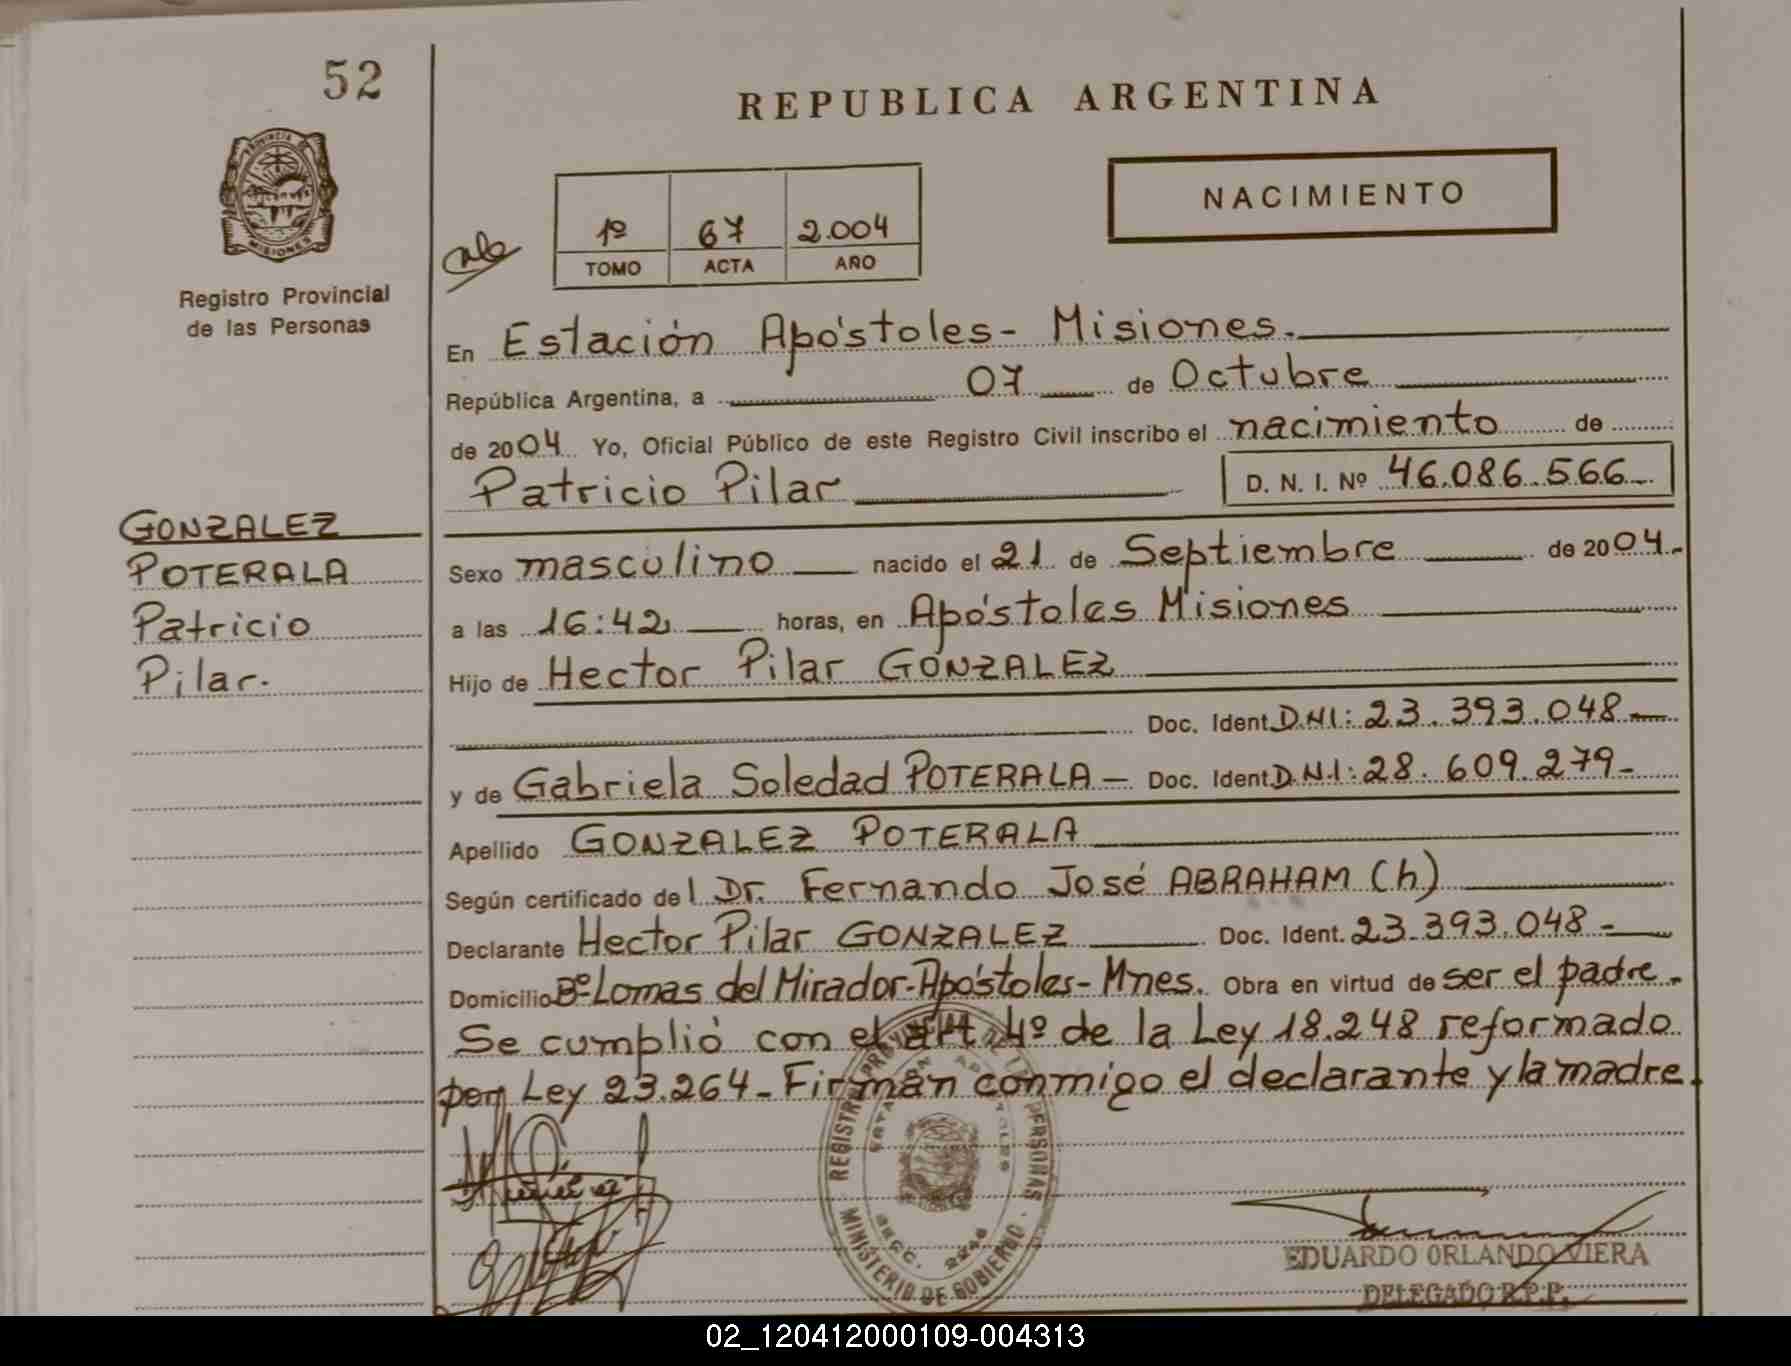 52
REPUBLICA ARGENTINA
PROVINCIA DE
MISIONES
Registro Provincial
de las Personas
NACIMIENTO
1º 67 2.004
TOMO ACTA AÑO
En Estación Apóstoles - Misiones.
República Argentina, a 07 de Octubre
de 2004. Yo, Oficial Público de este Registro Civil inscribo el nacimiento de
Patricio Pilar D. N. I. Nº 46.086.566
GONZALEZ
POTERALA
Patricio
Pilar.
Sexo masculino nacido el 21 de Septiembre de 2004.-
a las 16:42 horas, en Apóstoles Misiones
Hijo de Hector Pilar GONZALEZ
Doc. Ident. DNI: 23.393.048
y de Gabriela Soledad POTERALA - Doc. Ident. D.N.I: 28.609.279-
Apellido GONZALEZ POTERALA
Según certificado del Dr. Fernando José ABRAHAM (h)
Declarante Hector Pilar GONZALEZ Doc. Ident. 23.393.048-
Domicilio Bº Lomas del Mirador-Apóstoles-Mnes. Obra en virtud de ser el padre.
Se cumplió con el art 4º de la Ley 18.248 reformado
por Ley 23.264 - Firman conmigo el declarante y la madre.
REGISTRO PROVINCIAL DE LAS PERSONAS
MINISTERIO DE GOBIERNO
EDUARDO ORLANDO VIERA
DELEGADO R.P.P.
02_120412000109-004313